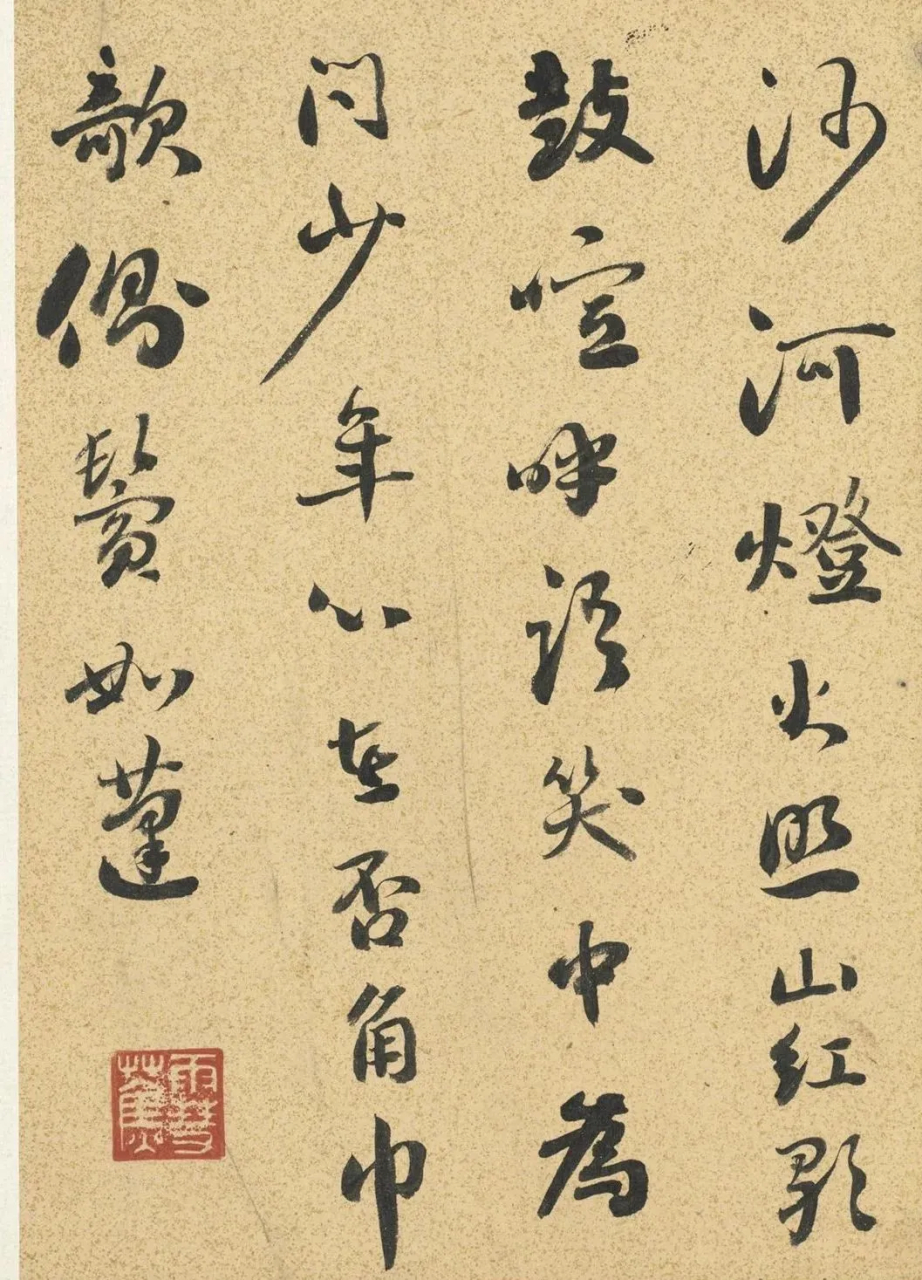 沙河燈火照山紅歌
鼓喧呼語笑中為
問少年心在否角巾
欹側鬢如蓬